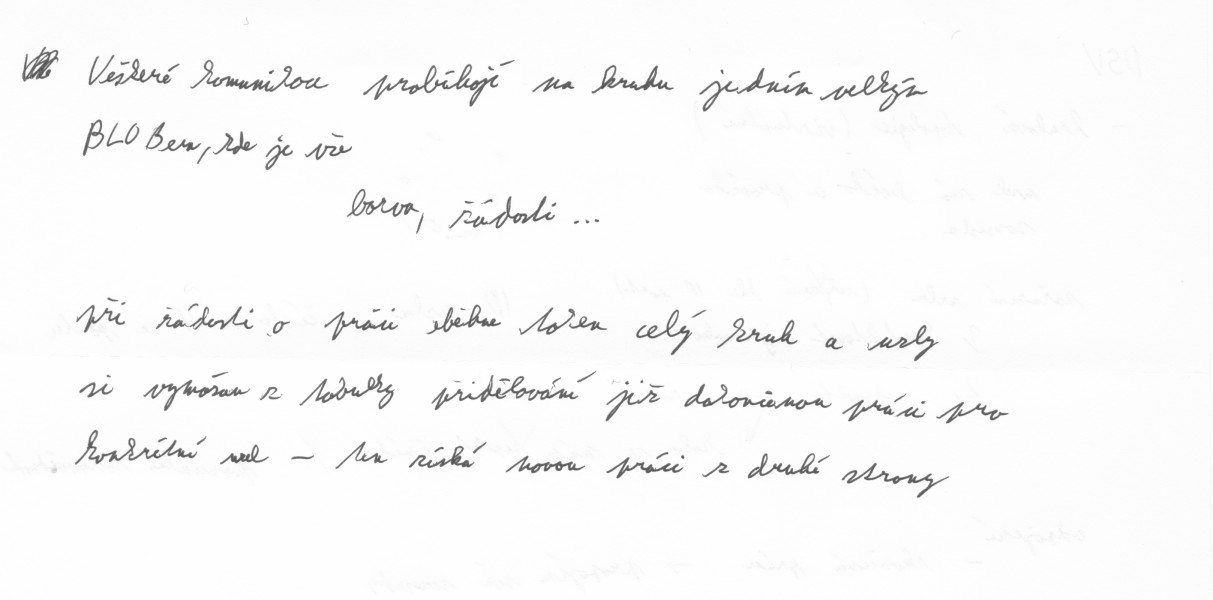 Veškeré komunikace probíhají na kruhu jedním velkým
BLOBem, kde je vše
barva, žádosti ...
při žádosti o práci oběhne token celý kruh a uzly
si vymažou z tabulky přidělování již dokončenou práci pro
konkrétní uzel – ten získá novou práci z druhé strany